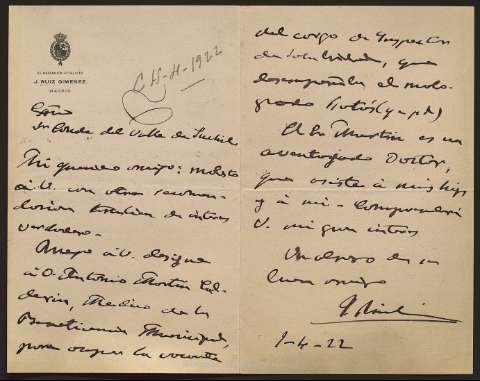 EL SENADOR VITALICIO
J. RUIZ GIMENEZ
MADRID
C 15-4-1922
Exmo
Sr Conde del Valle de Suchil
Mi querido amigo: molesto
á V. con otra recomen-
dacion tambien de interes
verdadero-
Ruego á V. designe
á D. Antonio Martin Cal-
deron, Medico de la
Beneficencia Municipal,
para ocupar la vacante
del cargo de Inspector
de Salubridad, que
desempeñaba el malo-
grado
El Sr Martin es un
aventajado Doctor,
que asiste á mis hijos
y á mi- Comprenderá
V. mi gran interes
Un abrazo de su
buen amigo
J Ruiz
1-4-22